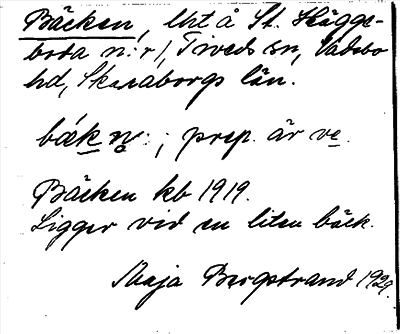 Bäcken, lht å St. Skägge-
boda n:r 1, Tiveds sn, Vadsbo
hd, Skaraborgs län.
bäkn̥:; prep. är ve.
Bäcken kb 1919.
Ligger vid en liten bäck.
Maja Bergstrand 1929.